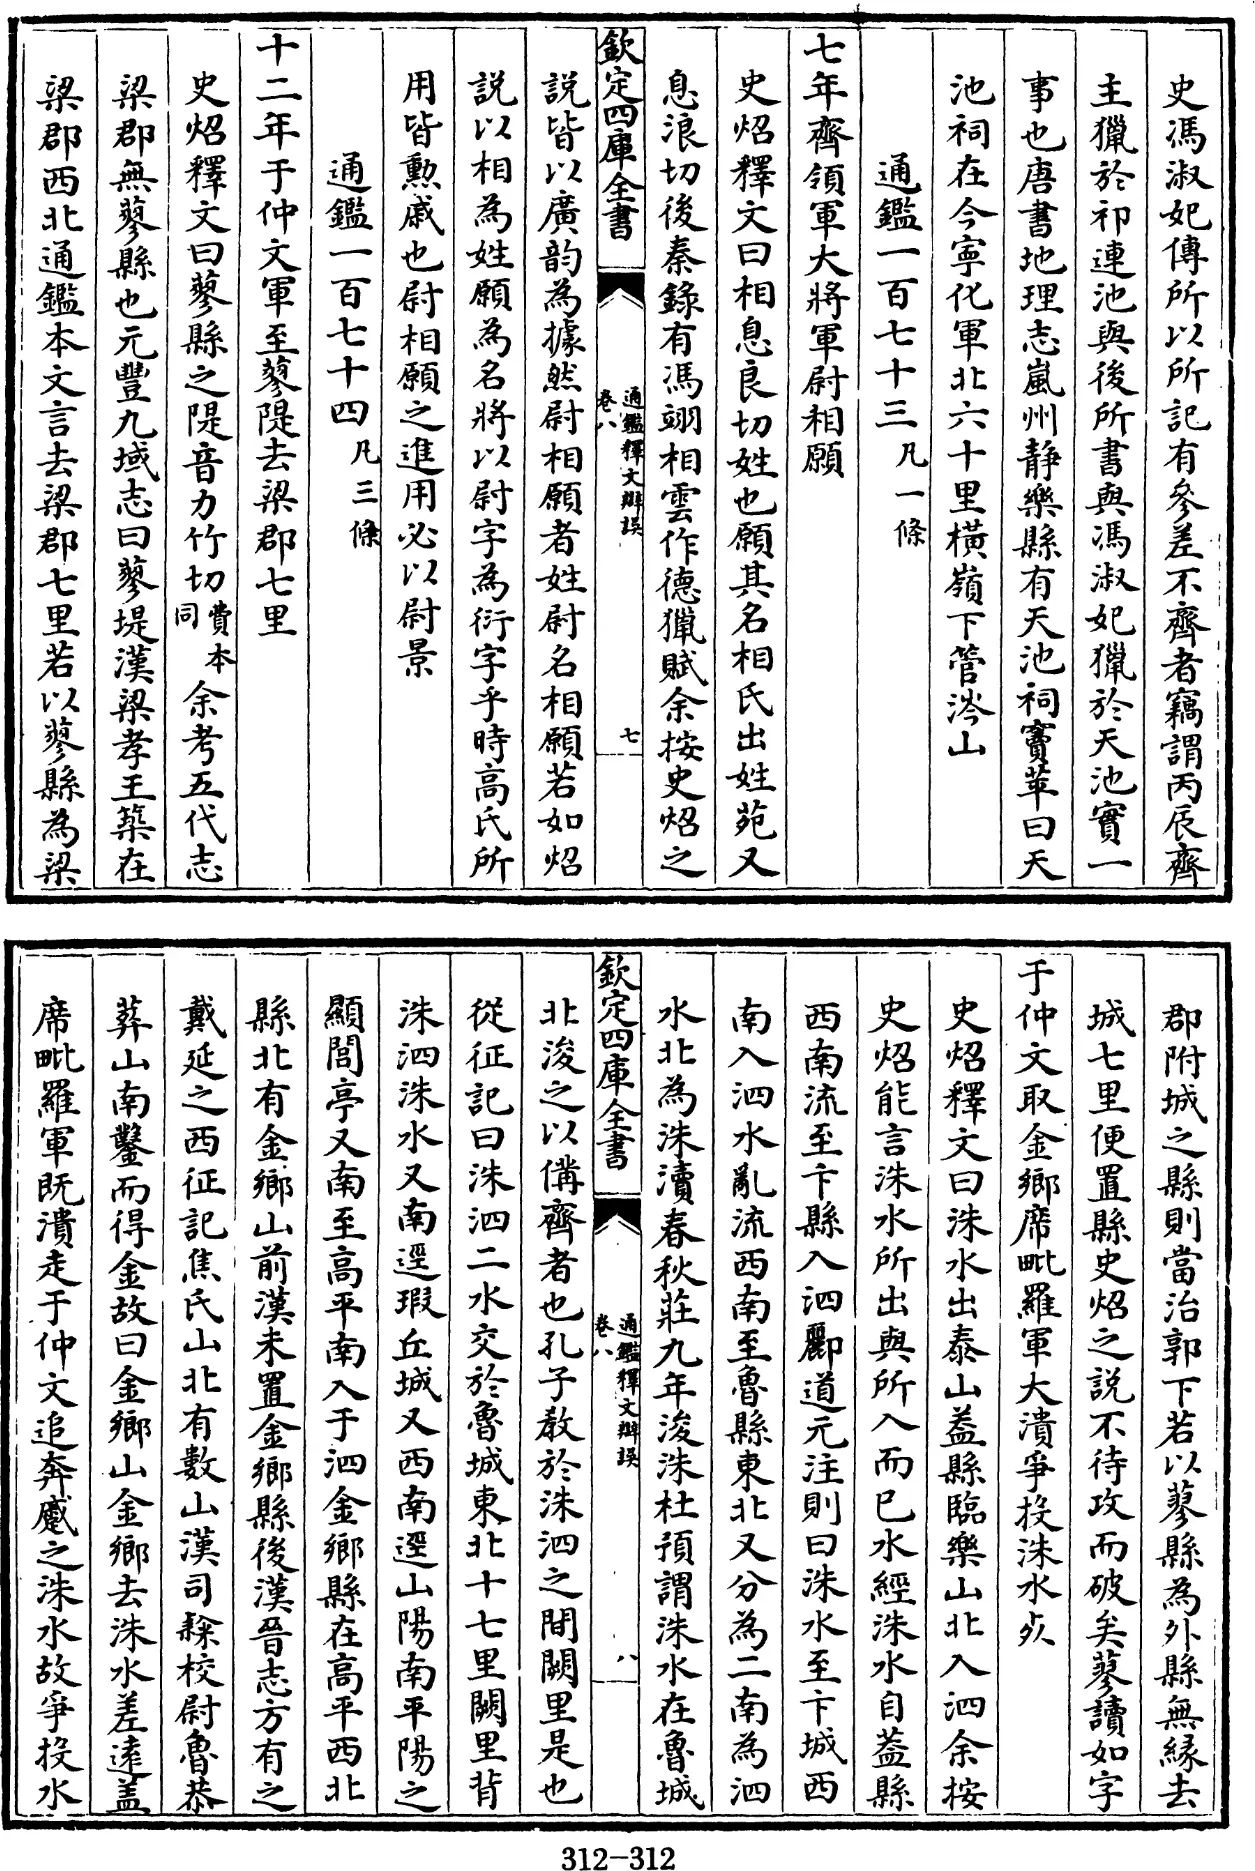 史馮淑妃傳所以所記有參差不齊者竊謂丙辰齊
主獵於祁連池與後所書與馮淑妃獵於天池實一
事也唐書地理志嵐州靜樂縣有天池祠竇苹曰天
池祠在今寧化軍北六十里橫嶺下管涔山
通鑑一百七十三凡一條
七年齊領軍大將軍尉相願
史炤釋文曰相息良切姓也願其名相氏出姓苑又
息浪切後秦錄有馮翊相雲作德獵賦余按史炤之
欽定四庫全書
通鑑釋文辯誤
卷八
七
説皆以廣韵為據然尉相願者姓尉名相願若如炤
説以相為姓願為名將以尉字為衍字乎時高氏所
用皆勲戚也尉相願之進用必以尉景
通鑑一百七十四凡三條
十二年于仲文軍至蓼隄去梁郡七里
史炤釋文曰蓼縣之隄音力竹切費本同余考五代志
梁郡無蓼縣也元豐九域志曰蓼堤漢梁孝王築在
梁郡西北通鑑本文言去梁郡七里若以蓼縣為梁
郡附城之縣則當治郭下若以蓼縣為外縣無緣去
城七里便置縣史炤之説不待攻而破矣蓼讀如字
于仲文取金鄉席毗羅軍大潰爭投洙水死
史炤釋文曰洙水出泰山蓋縣臨樂山北入泗余按
史炤能言洙水所出與所入而已水經洙水自蓋縣
西南流至卞縣入泗酈道元注則曰洙水至卞城西
南入泗水亂流西南至魯縣東北又分為二南為泗
水北為洙瀆春秋莊九年浚洙杜預謂洙水在魯城
欽定四庫全書
通鑑釋文辯誤
卷八
八
北浚之以備齊者也孔子教於洙泗之間闕里是也
從征記曰洙泗二水交於魯城東北十七里闕里背
洙泗洙水又南逕瑕丘城又西南逕山陽南平陽之
顯閭亭又南至高平南入于泗金鄉縣在高平西北
縣北有金鄉山前漢未置金鄉縣後漢晉志方有之
戴延之西征記焦氏山北有數山漢司隸校尉魯恭
葬山南鑿而得金故曰金鄉山金鄉去洙水差遠蓋
席毗羅軍既潰走于仲文追奔蹙之洙水故爭投水
312-312